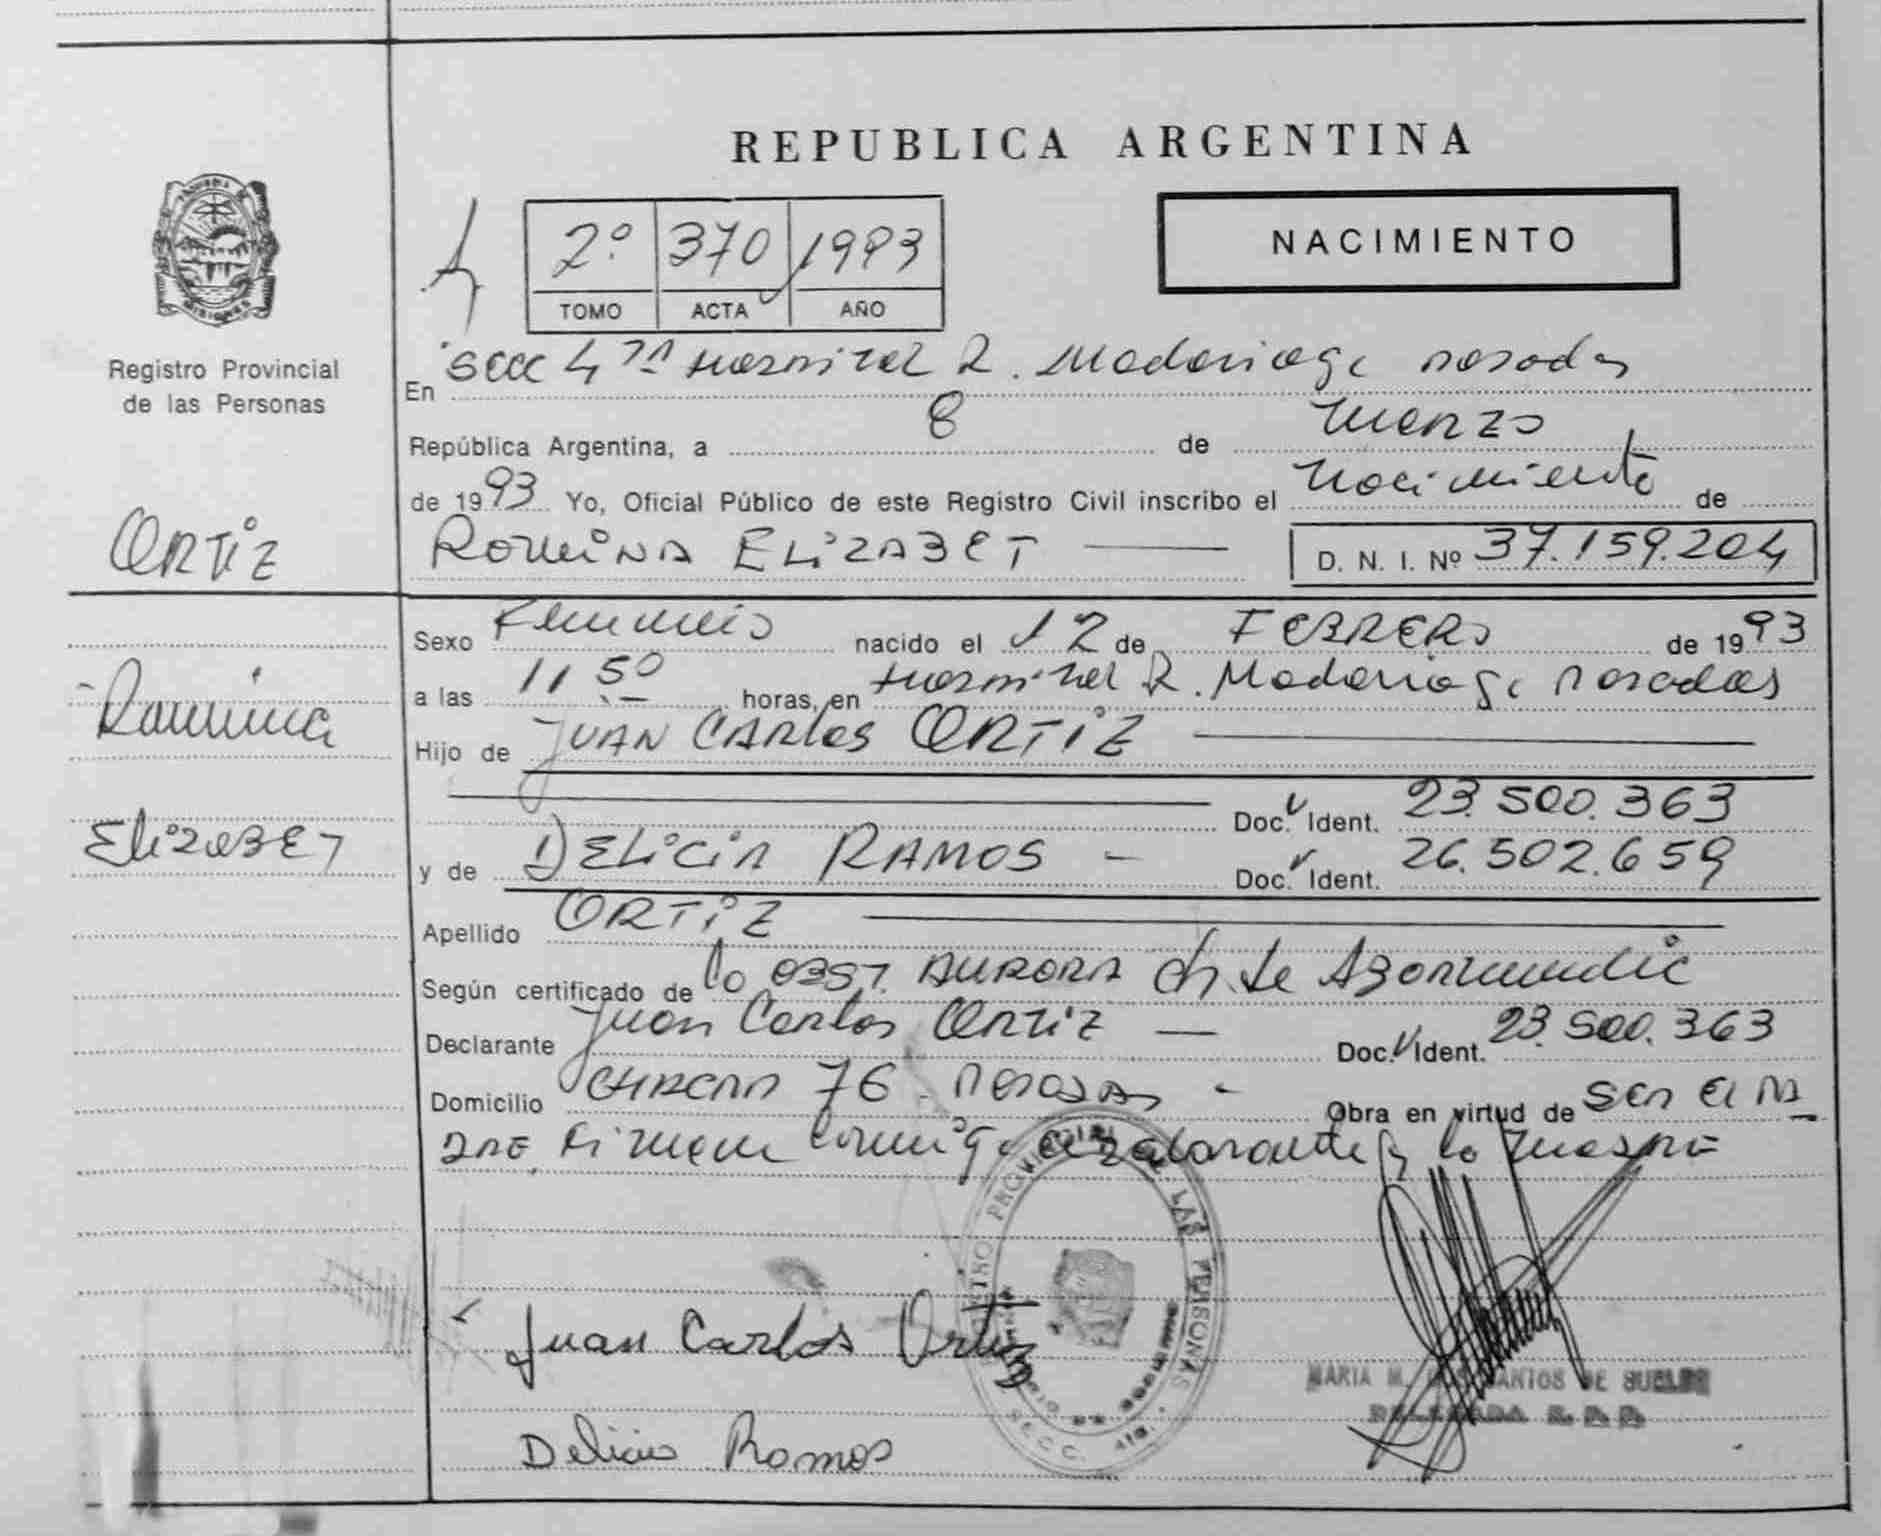 REPUBLICA ARGENTINA
NACIMIENTO
2º 370 1993
TOMO ACTA AÑO
Registro Provincial
de las Personas
En Secc 4ta Hospital R. Madariaga Posadas
República Argentina, a 8 de Marzo
de 1993 Yo, Oficial Público de este Registro Civil inscribo el Nacimiento de
ORTIZ
ROMINA ELIZABET
D. N. I. Nº 37.159.204
Sexo Femenino nacido el 12 de FEBRERO de 1993
a las 11 50 horas, en Hospital R. Madariaga Posadas
Romina
Hijo de JUAN CARLOS ORTIZ
Doc. Ident. 23.500.363
Elizabet
y de DELICIA RAMOS - Doc. Ident. 26.502.659
Apellido ORTIZ
Según certificado de la OBST. AURORA Ch. de
Declarante Juan Carlos Ortiz — Doc. Ident. 23.500.363
Domicilio CHACRA 76 - POSADAS - Obra en virtud de ser el PA
DRE. Firman conmigo declarante y la MADRE
REGISTRO PROVINCIAL DE LAS PERSONAS
SECC. 4ta.
Juan Carlos Ortiz
MARIA M. DOS SANTOS DE
DELEGADA R. P. P.
Delicia Ramos